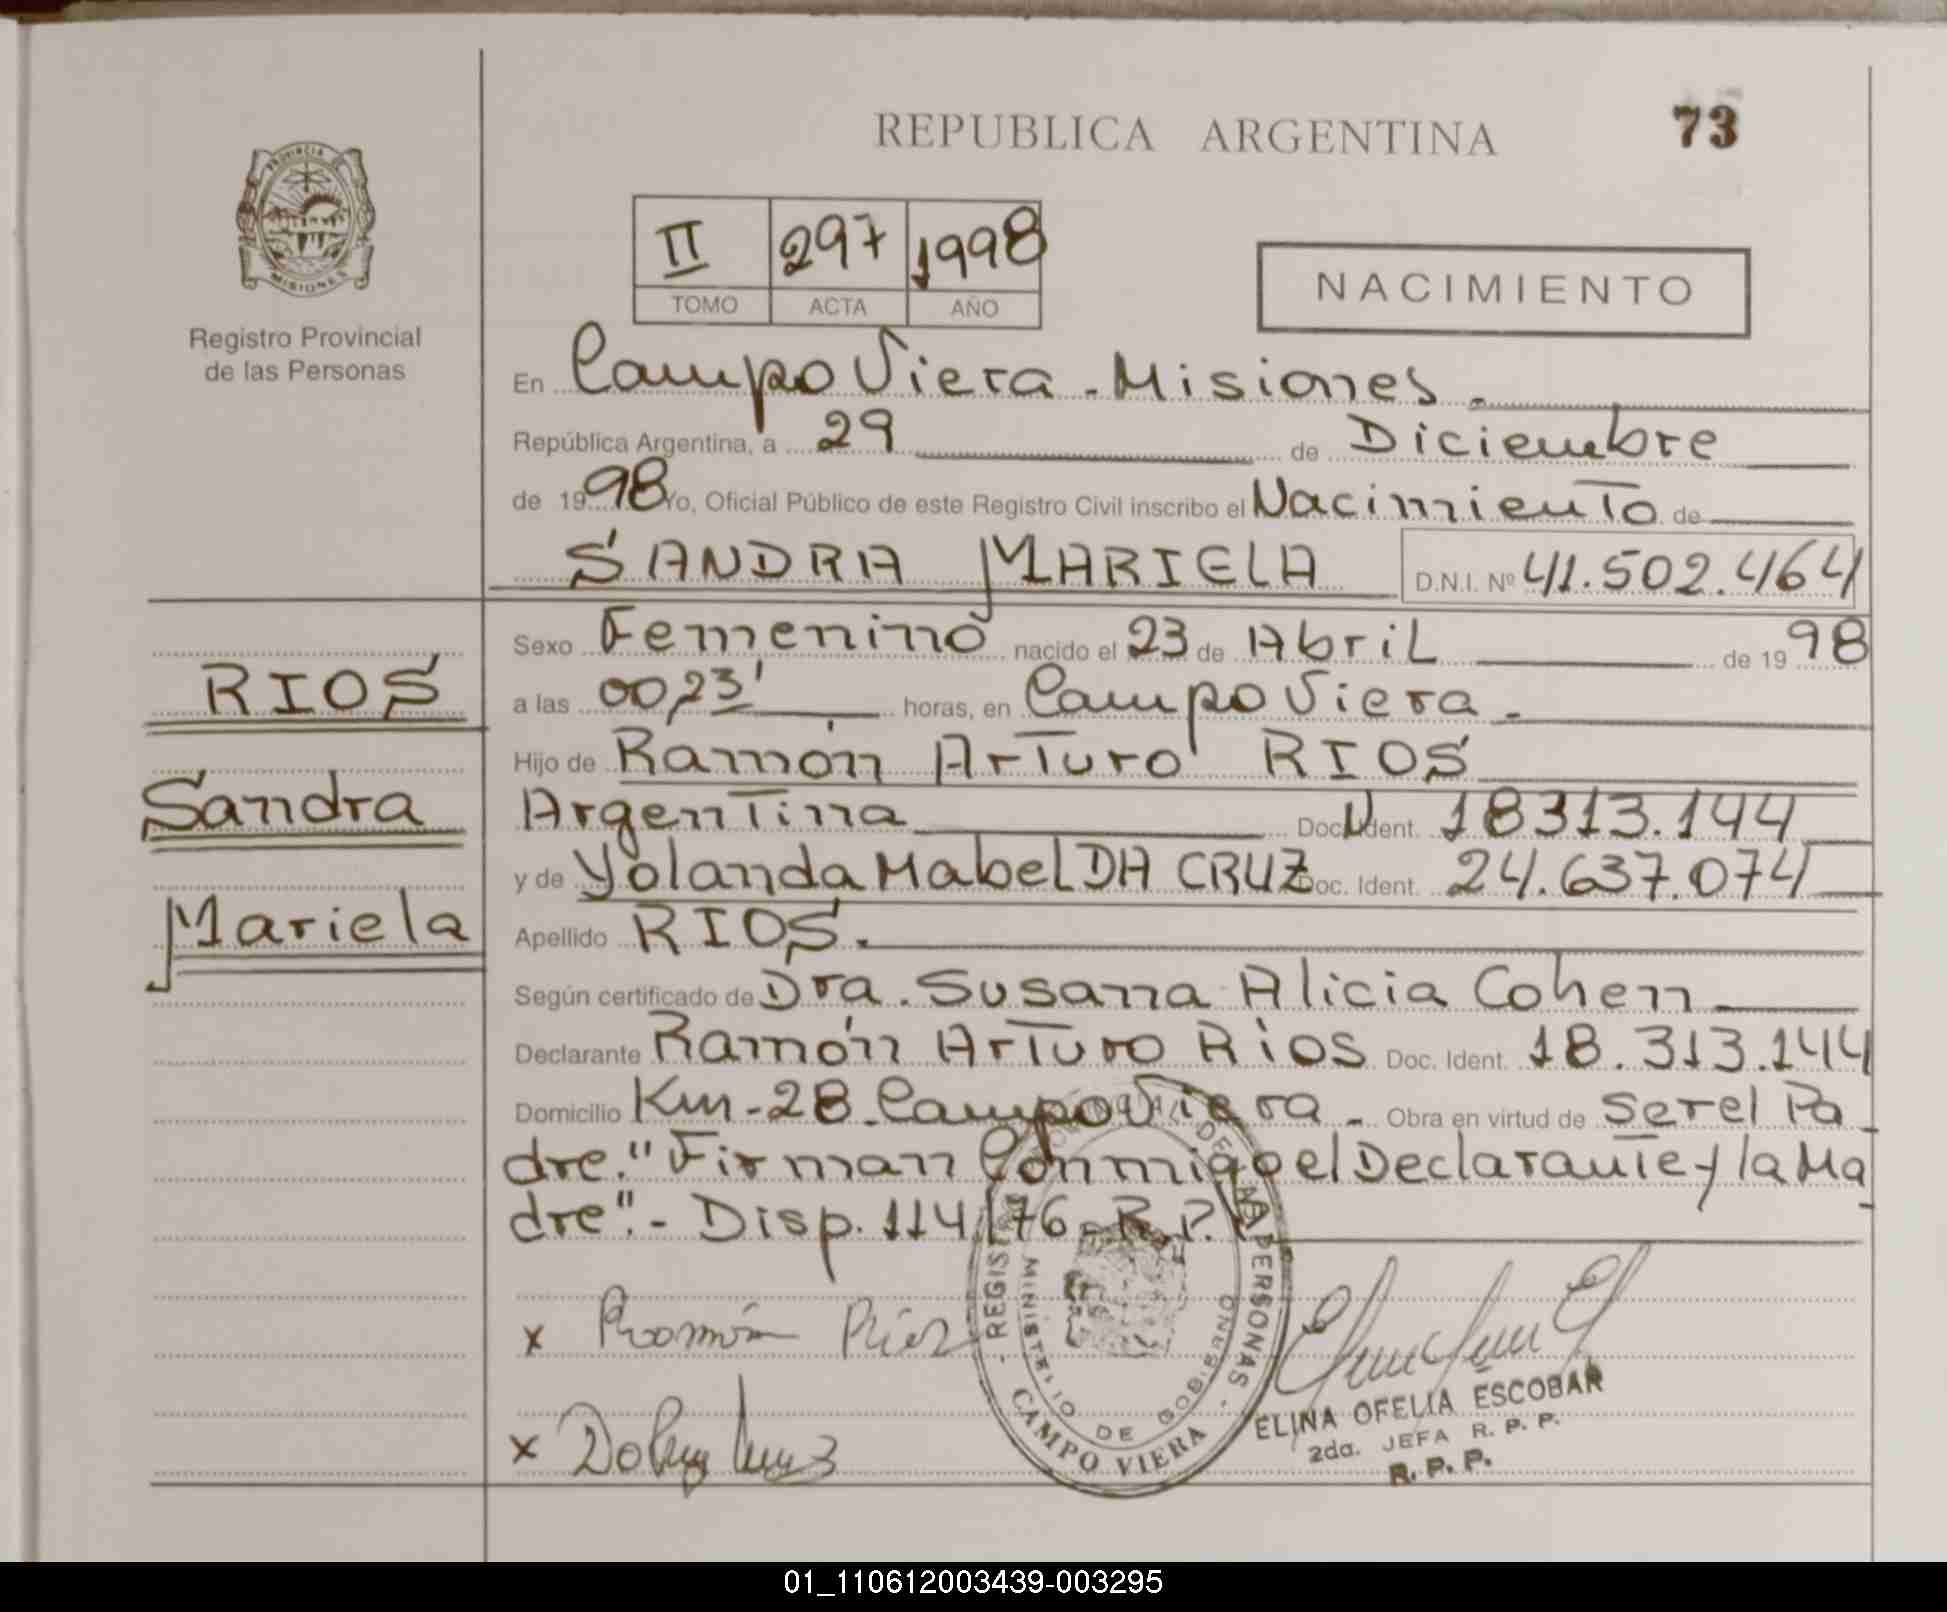 REPUBLICA ARGENTINA
73
PROVINCIA DE
MISIONES
Registro Provincial
de las Personas
II 297 1998
TOMO ACTA AÑO
NACIMIENTO
En Campo Viera - Misiones.
República Argentina, a 29 de Diciembre
de 1998 Yo, Oficial Público de este Registro Civil inscribo el Nacimiento de
SANDRA MARIELA D.N.I. Nº 41.502.464
Sexo Femenino nacido el 23 de Abril de 1998
RIOS
a las 00,23' horas, en Campo Viera -
Hijo de Ramón Arturo RIOS
Sandra
Argentina Doc. Ident. N 18313.144
y de Yolanda Mabel DA CRUZ Doc. Ident. 24.637.074
Mariela
Apellido RIOS.
Según certificado de Dra. Susana Alicia Cohen
Declarante Ramón Arturo Rios Doc. Ident. 18.313.144
Domicilio Km-28-Campo Viera - Obra en virtud de Ser el Pa-
dre." Firman Conmigo el Declarante y la Ma-
dre".- Disp. 114/76-R.P.P.
x Ramón Rios
x
REGISTRO PROVINCIAL DE LAS PERSONAS - CAMPO VIERA -
MINISTERIO DE GOBIERNO
ELINA OFELIA ESCOBAR
2da. JEFA R. P. P.
R. P. P.
01_110612003439-003295